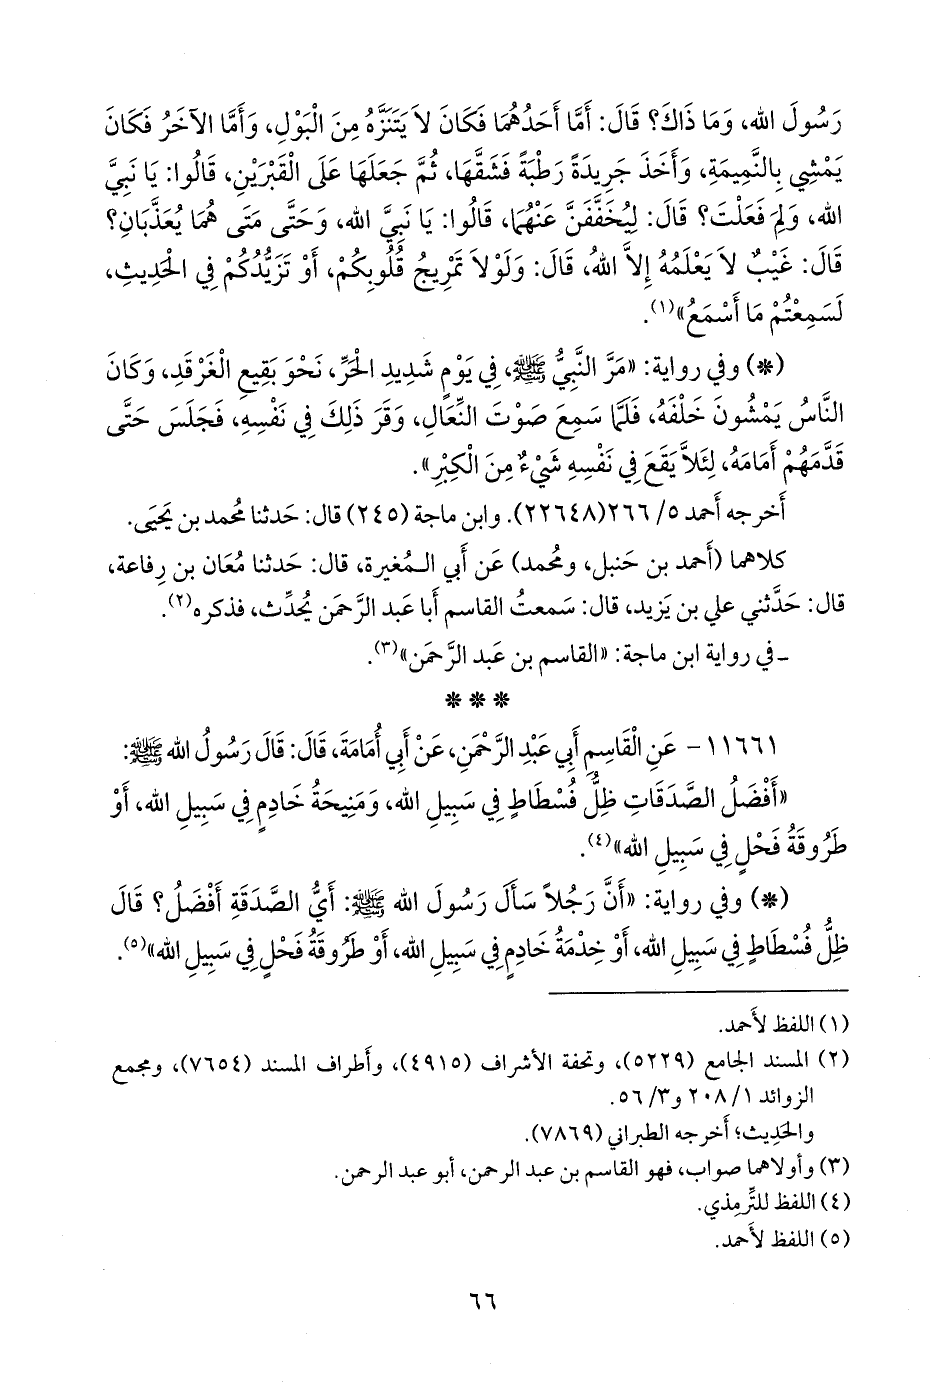 رَسُولَ الله، وَمَا ذَاكَ؟ قَالَ: أَمَّا أَحَدُهُمَا فَكَانَ لاَ يَتَنَزَّهُ مِنَ الْبَوْلِ، وَأَمَّا الآخَرُ فَكَانَ
يَمْشِي بِالنَّمِيمَةِ، وَأَخَذَ جَرِيدَةً رَطْبَةً فَشَقَّهَا، ثُمَّ جَعَلَهَا عَلَى الْقَبْرَيْنِ، قَالُوا: يَا نَبِيَّ
الله، وَلِمَ فَعَلْتَ؟ قَالَ: لِيُخَفَّفَنَّ عَنْهُمَا، قَالُوا: يَا نَبِيَّ الله، وَحَتَّى مَتَى هُمَا يُعَذَّبَانِ؟
قَالَ: غَيْبٌ لاَ يَعْلَمُهُ إِلاَّ اللهُ، قَالَ: وَلَوْلاَ تَمْرِيجُ قُلُوبِكُمْ، أَوْ تَزَيُّدُكُمْ فِي الْحَدِيثِ،
لَسَمِعْتُمْ مَا أَسْمَعُ»(١).
(*) وفي رواية: «مَرَّ النَّبِيُّ ﷺ، فِي يَوْمٍ شَدِيدِ الْحَرِّ، نَحْوَ بَقِيعِ الْغَرْقَدِ، وَكَانَ
النَّاسُ يَمْشُونَ خَلْفَهُ، فَلَمَّا سَمِعَ صَوْتَ النِّعَالِ، وَقَرَ ذَلِكَ فِي نَفْسِهِ، فَجَلَسَ حَتَّى
قَدَّمَهُمْ أَمَامَهُ، لِئَلاَّ يَقَعَ فِي نَفْسِهِ شَيْءٌ مِنَ الْكِبْرِ».
أَخرجه أَحمد ٥/ ٢٦٦(٢٢٦٤٨). وابن ماجة (٢٤٥) قال: حَدثنا مُحمد بن يَحيَى.
كلاهما (أَحمد بن حَنبل، ومُحمد) عَن أَبي الـمُغيرة، قال: حَدثنا مُعَان بن رِفاعة،
قال: حَدَّثني علي بن يَزيد، قال: سَمعتُ القاسم أَبا عَبد الرَّحمَن يُحدِّث، فذكره(٢).
ـ في رواية ابن ماجة: «القاسم بن عَبد الرَّحمَن»(٣).
* * *
١١٦٦١- عَنِ الْقَاسِمِ أَبِي عَبْدِ الرَّحْمَنِ، عَنْ أَبِي أُمَامَةَ، قَالَ: قَالَ رَسُولُ الله ﷺ:
«أَفْضَلُ الصَّدَقَاتِ ظِلُّ فُسْطَاطٍ فِي سَبِيلِ الله، وَمَنِيحَةُ خَادِمٍ فِي سَبِيلِ الله، أَوْ
طَرُوقَةُ فَحْلٍ فِي سَبِيلِ الله»(٤).
(*) وفي رواية: «أَنَّ رَجُلاً سَأَلَ رَسُولَ الله ﷺ: أَيُّ الصَّدَقَةِ أَفْضَلُ؟ قَالَ
ظِلُّ فُسْطَاطٍ فِي سَبِيلِ الله، أَوْ خِدْمَةُ خَادِمٍ فِي سَبِيلِ الله، أَوْ طَرُوقَةُ فَحْلٍ فِي سَبِيلِ الله»(٥).
(١) اللفظ لأَحمد.
(٢) المسند الجامع (٥٢٢٩)، وتحفة الأشراف (٤٩١٥)، وأَطراف المسند (٧٦٥٤)، ومجمع
الزوائد ١/ ٢٠٨ و٣/ ٥٦.
والحَدِيث؛ أَخرجه الطبراني (٧٨٦٩).
(٣) وأولاهما صواب، فهو القاسم بن عبد الرحمن، أبو عبد الرحمن.
(٤) اللفظ للتِّرمِذي.
(٥) اللفظ لأَحمد.
٦٦